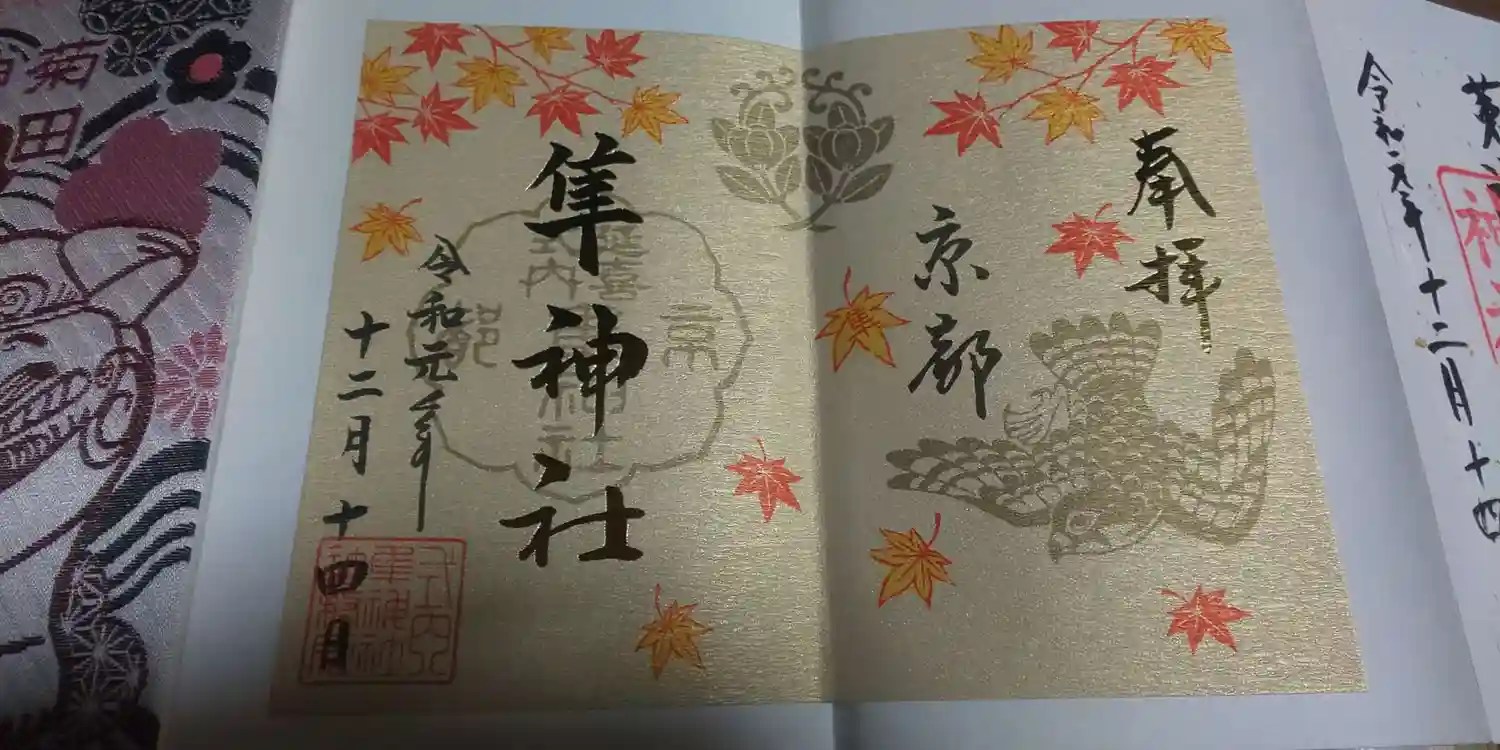 令和元年十二月十四
奉拝
京都
隼神社
令和元年
十二月十四日
延喜
式内
京
都
菊田